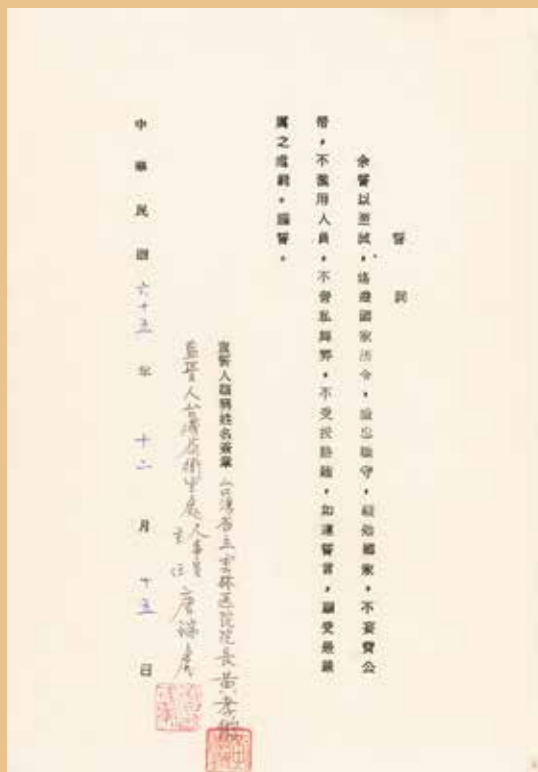 誓詞
余誓以至誠，恪遵國家法令，盡忠職守，報効國家，不妄費公
帑，不濫用人員，不營私舞弊，不受授賄賂，如違誓言，願受最嚴
厲之處罰，謹誓。
宣誓人職稱姓名簽章 台灣省立雲林医院院長黃孝
監誓人台灣省衛生處人事室
主任 唐
中華民國六十五年十二月十五日